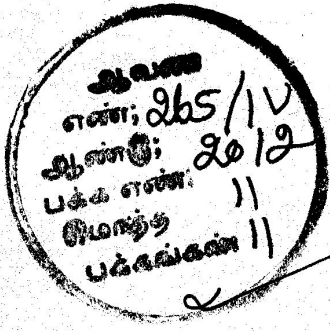 ஆவண
எண்; 265/IV
ஆண்டு; 2012
பக்க எண்: 11
மொத்த
பக்கங்கள் 11